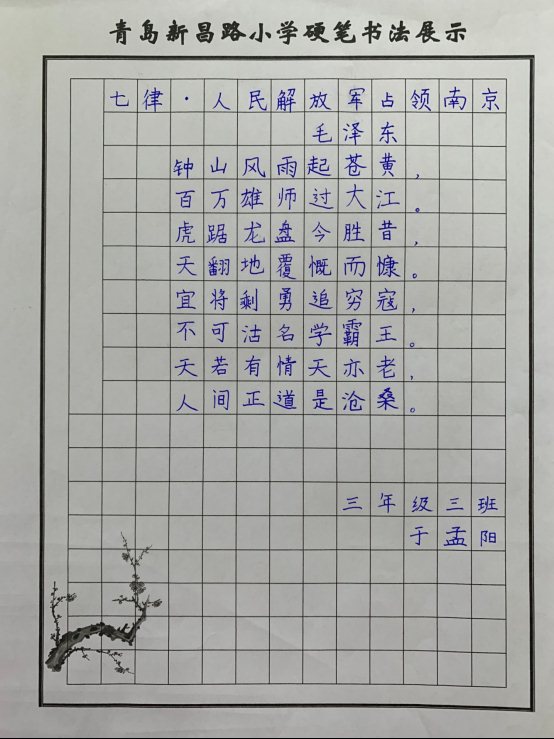 青岛新昌路小学硬笔书法展示
七律·人民解放军占领南京
毛泽东
钟山风雨起苍黄，
百万雄师过大江。
虎踞龙盘今胜昔，
天翻地覆慨而慷。
宜将剩勇追穷寇，
不可沽名学霸王。
天若有情天亦老，
人间正道是沧桑。
三年级三班
于孟阳